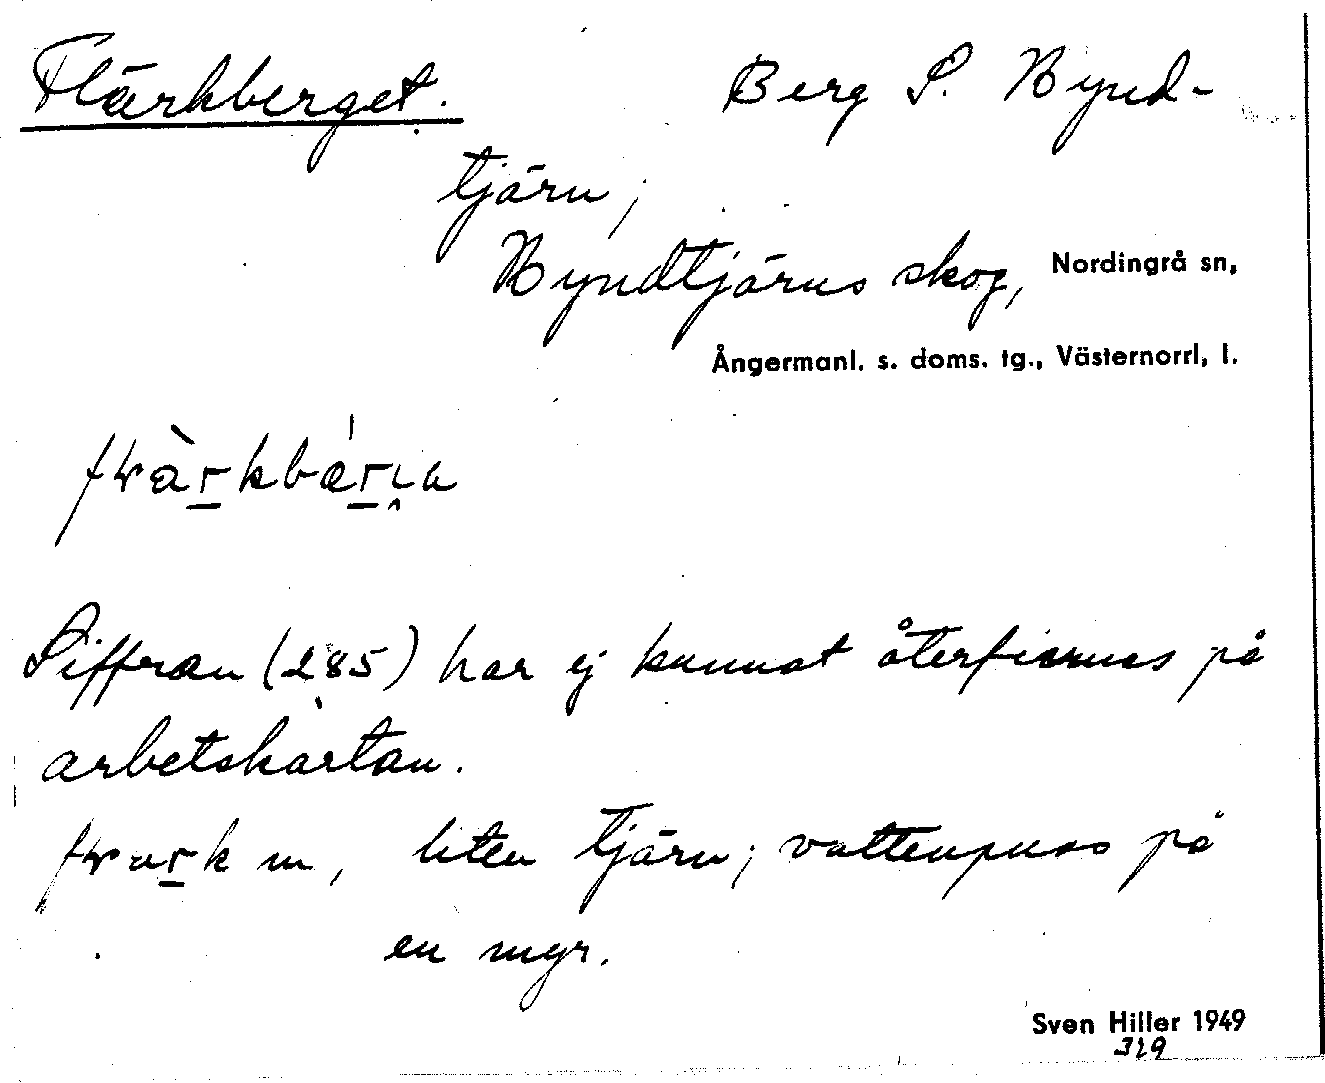 Flärkberget. Berg S. Bynd-
tjärn;
Byndtjärns skog, Nordingrå sn,
Ångermanl. s. doms. tg., Västernorrl. l.
Siffran (285) har ej kunnat återfinnas på
arbetskartan.
m, liten tjärn; vattenpuss på
en myr.
Sven Hiller 1949
329